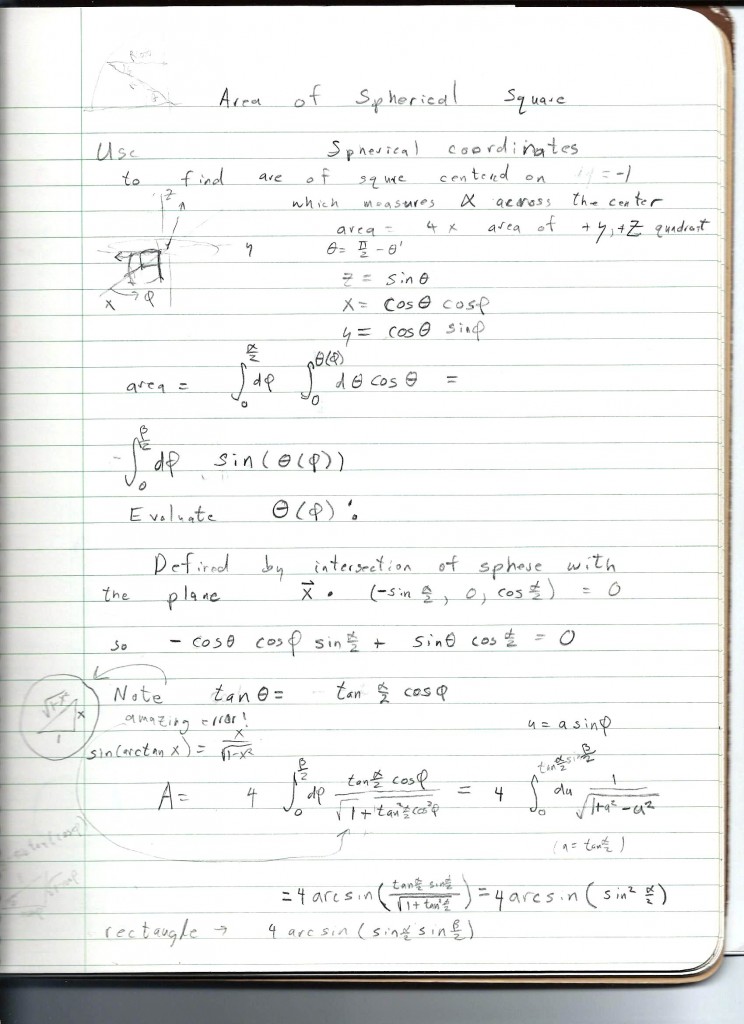 Area of Spherical Square
Use Spherical coordinates
to find are of squre centerd on = -1
which measures α across the center
area = 4 x area of +y, +z quadrant
θ = π/2 - θ'
z = sin θ
x = cos θ cos φ
y = cos θ sin φ
z
n
y
x
φ
area = ∫₀^(α/2) dφ ∫₀^(θ(φ)) dθ cos θ =
∫₀^(β/2) dφ sin(θ(φ))
Evaluate θ(φ):
Defined by intersection of sphere with
the plane x⃗ • (-sin α/2, 0, cos α/2) = 0
so - cos θ cos φ sin α/2 + sin θ cos α/2 = 0
Note tan θ = tan α/2 cos φ
amazing error!
u = a sin φ
sin(arctan x) = x/√(1-x²)
x
1
A = 4 ∫₀^(β/2) dφ (tan α/2 cos φ)/√(1 + tan² α/2 cos² φ) = 4 ∫₀^(tan α/2 sin β/2) du 1/√(1+a²-u²)
(a = tan α/2)
= 4 arcsin((tan α/2 sin α/2)/√(1 + tan² α/2)) = 4 arcsin(sin² α/2)
rectangle → 4 arcsin(sin α/2 sin β/2)